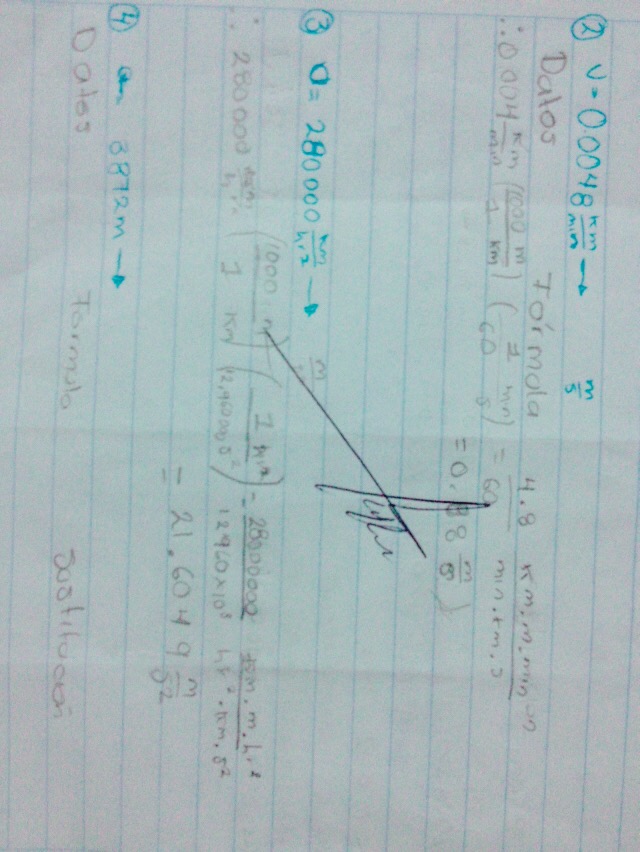 ② v = 0.0048 km/min → m/s
Datos Fórmula
∴ 0.004 km/min (1000 m / 1 km) (1 min / 60 s) = 4.8 / 60 km.m.min / min.km.s
= 0. 8 m/s
③ a = 280000 km/hr² → m/
∴ 280000 km/hr² (1000 m / 1 km) (1 hr² / 12,960,000 s²) = 28000000 / 12960x10³ km.m.hr² / hr².km.s²
= 21.6049 m/s²
④ a = 3872m →
Datos Formula Sustitución